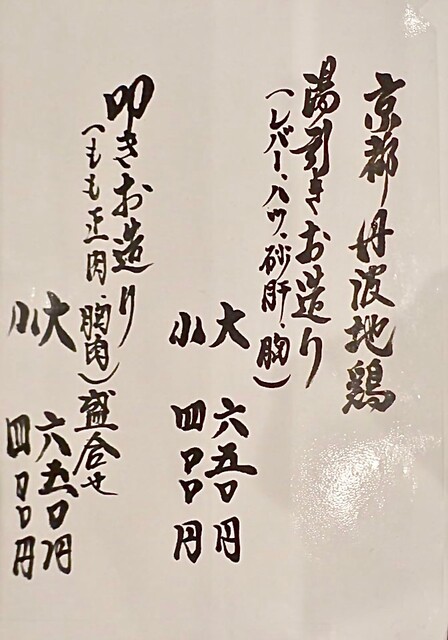 京都丹波地鶏
湯引きお造り
(レバー、ハツ、砂肝、胸)
大 六五〇円
小 四〇〇円
叩きお造り
(もも正肉、胸肉)盛合せ
大 六五〇円
小 四〇〇円